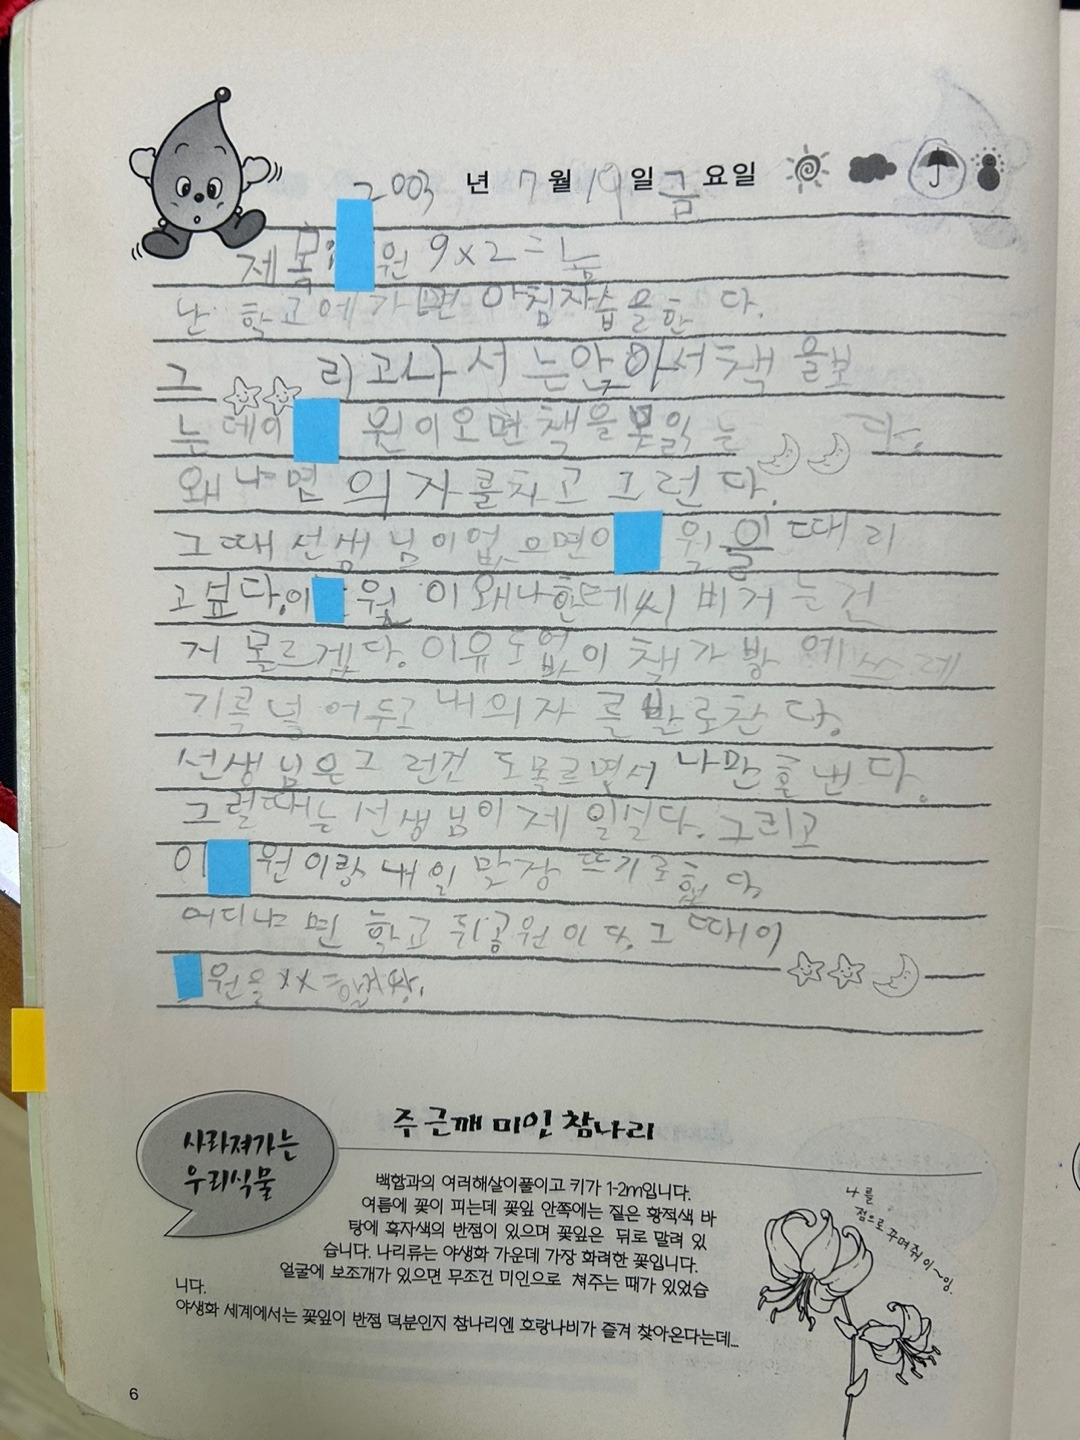 2003 년 7 월 일 금 요일
제목: 원 9x2=놈
난 학교에 가면 아침자습을한 다.
그 리고나 서 는앉아서책 을보
는데이 원이오면책을못읽는 다.
왜냐면 의자를차고 그런다.
그때 선생님이없으면이 원을 때리
고싶다.이 원 이왜나한테씨비거는건
지 몰르겠다. 이유도없이 책가방 에쓰레
기를널어두고 내의자 를발로찬다.
선생님은그런건도몰르면서 나만혼낸다.
그럴때는선생님이제일싫다. 그리고
이 원이랑 내일 맞장 뜨기로했다.
어디냐면 학교 뒤공원이다. 그때이
원을 xx
사라져가는
우리식물
주근깨 미인 참나리
백합과의 여러해살이풀이고 키가 1-2m입니다.
여름에 꽃이 피는데 꽃잎 안쪽에는 짙은 황적색 바
탕에 흑자색의 반점이 있으며 꽃잎은 뒤로 말려 있
습니다. 나리류는 야생화 가운데 가장 화려한 꽃입니다.
얼굴에 보조개가 있으면 무조건 미인으로 쳐주는 때가 있었습
니다.
야생화 세계에서는 꽃잎이 반점 덕분인지 참나리엔 호랑나비가 즐겨 찾아온다는데...
나를
점으로 꾸며줘이~잉.
6